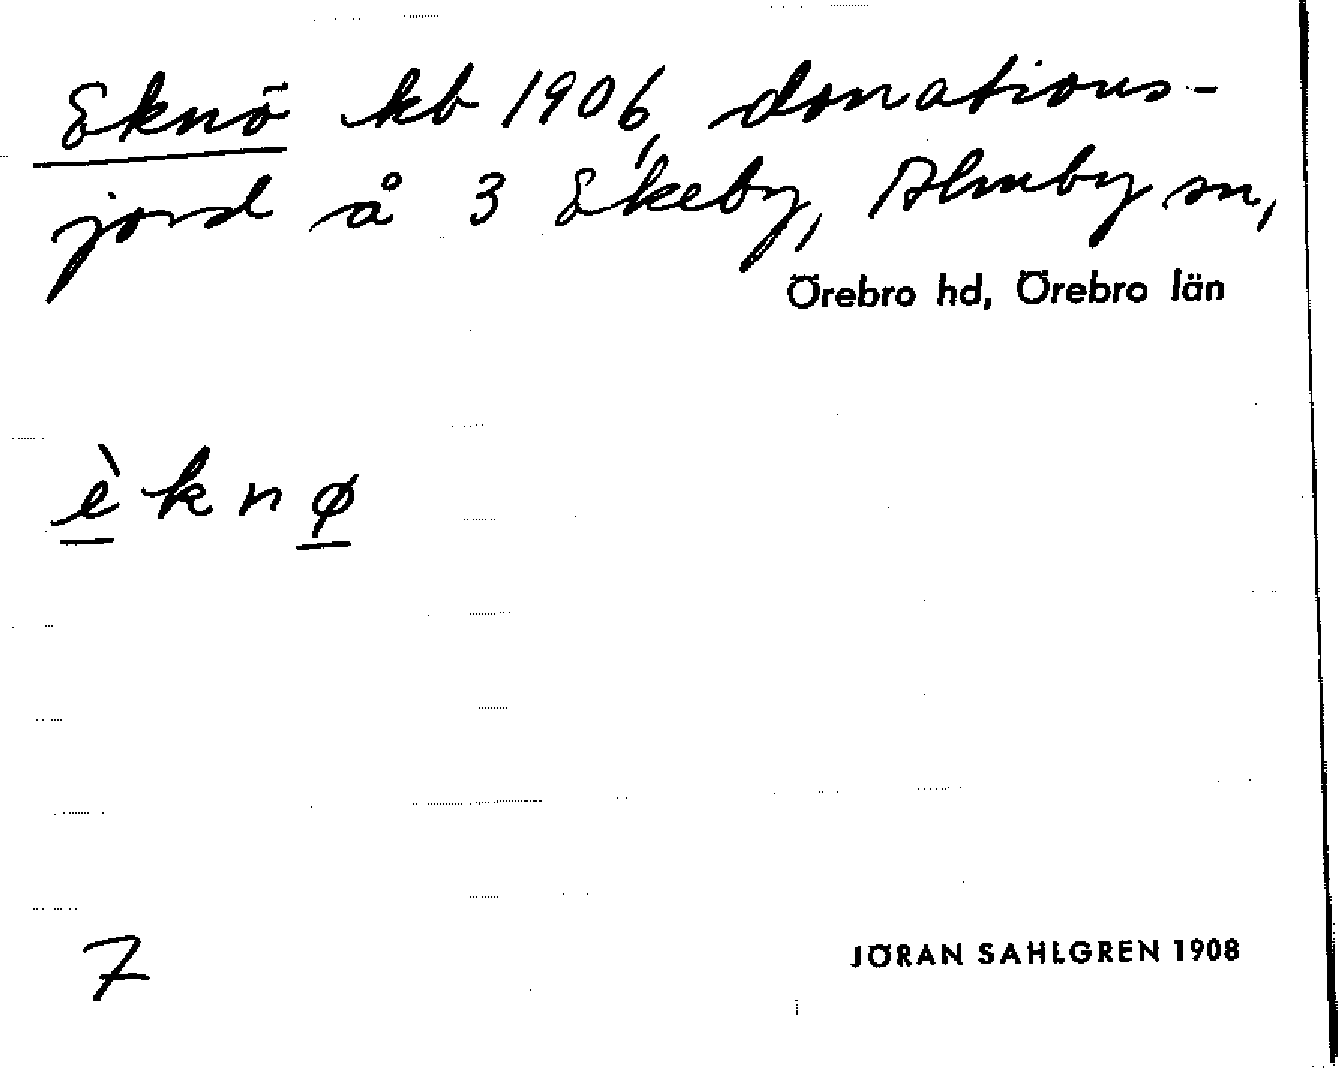 Eknö kb 1906, donations-
jord å 3 Ekeby, Almby sn,
Örebro hd, Örebro län
èknø
7
JÖRAN SAHLGREN 1908